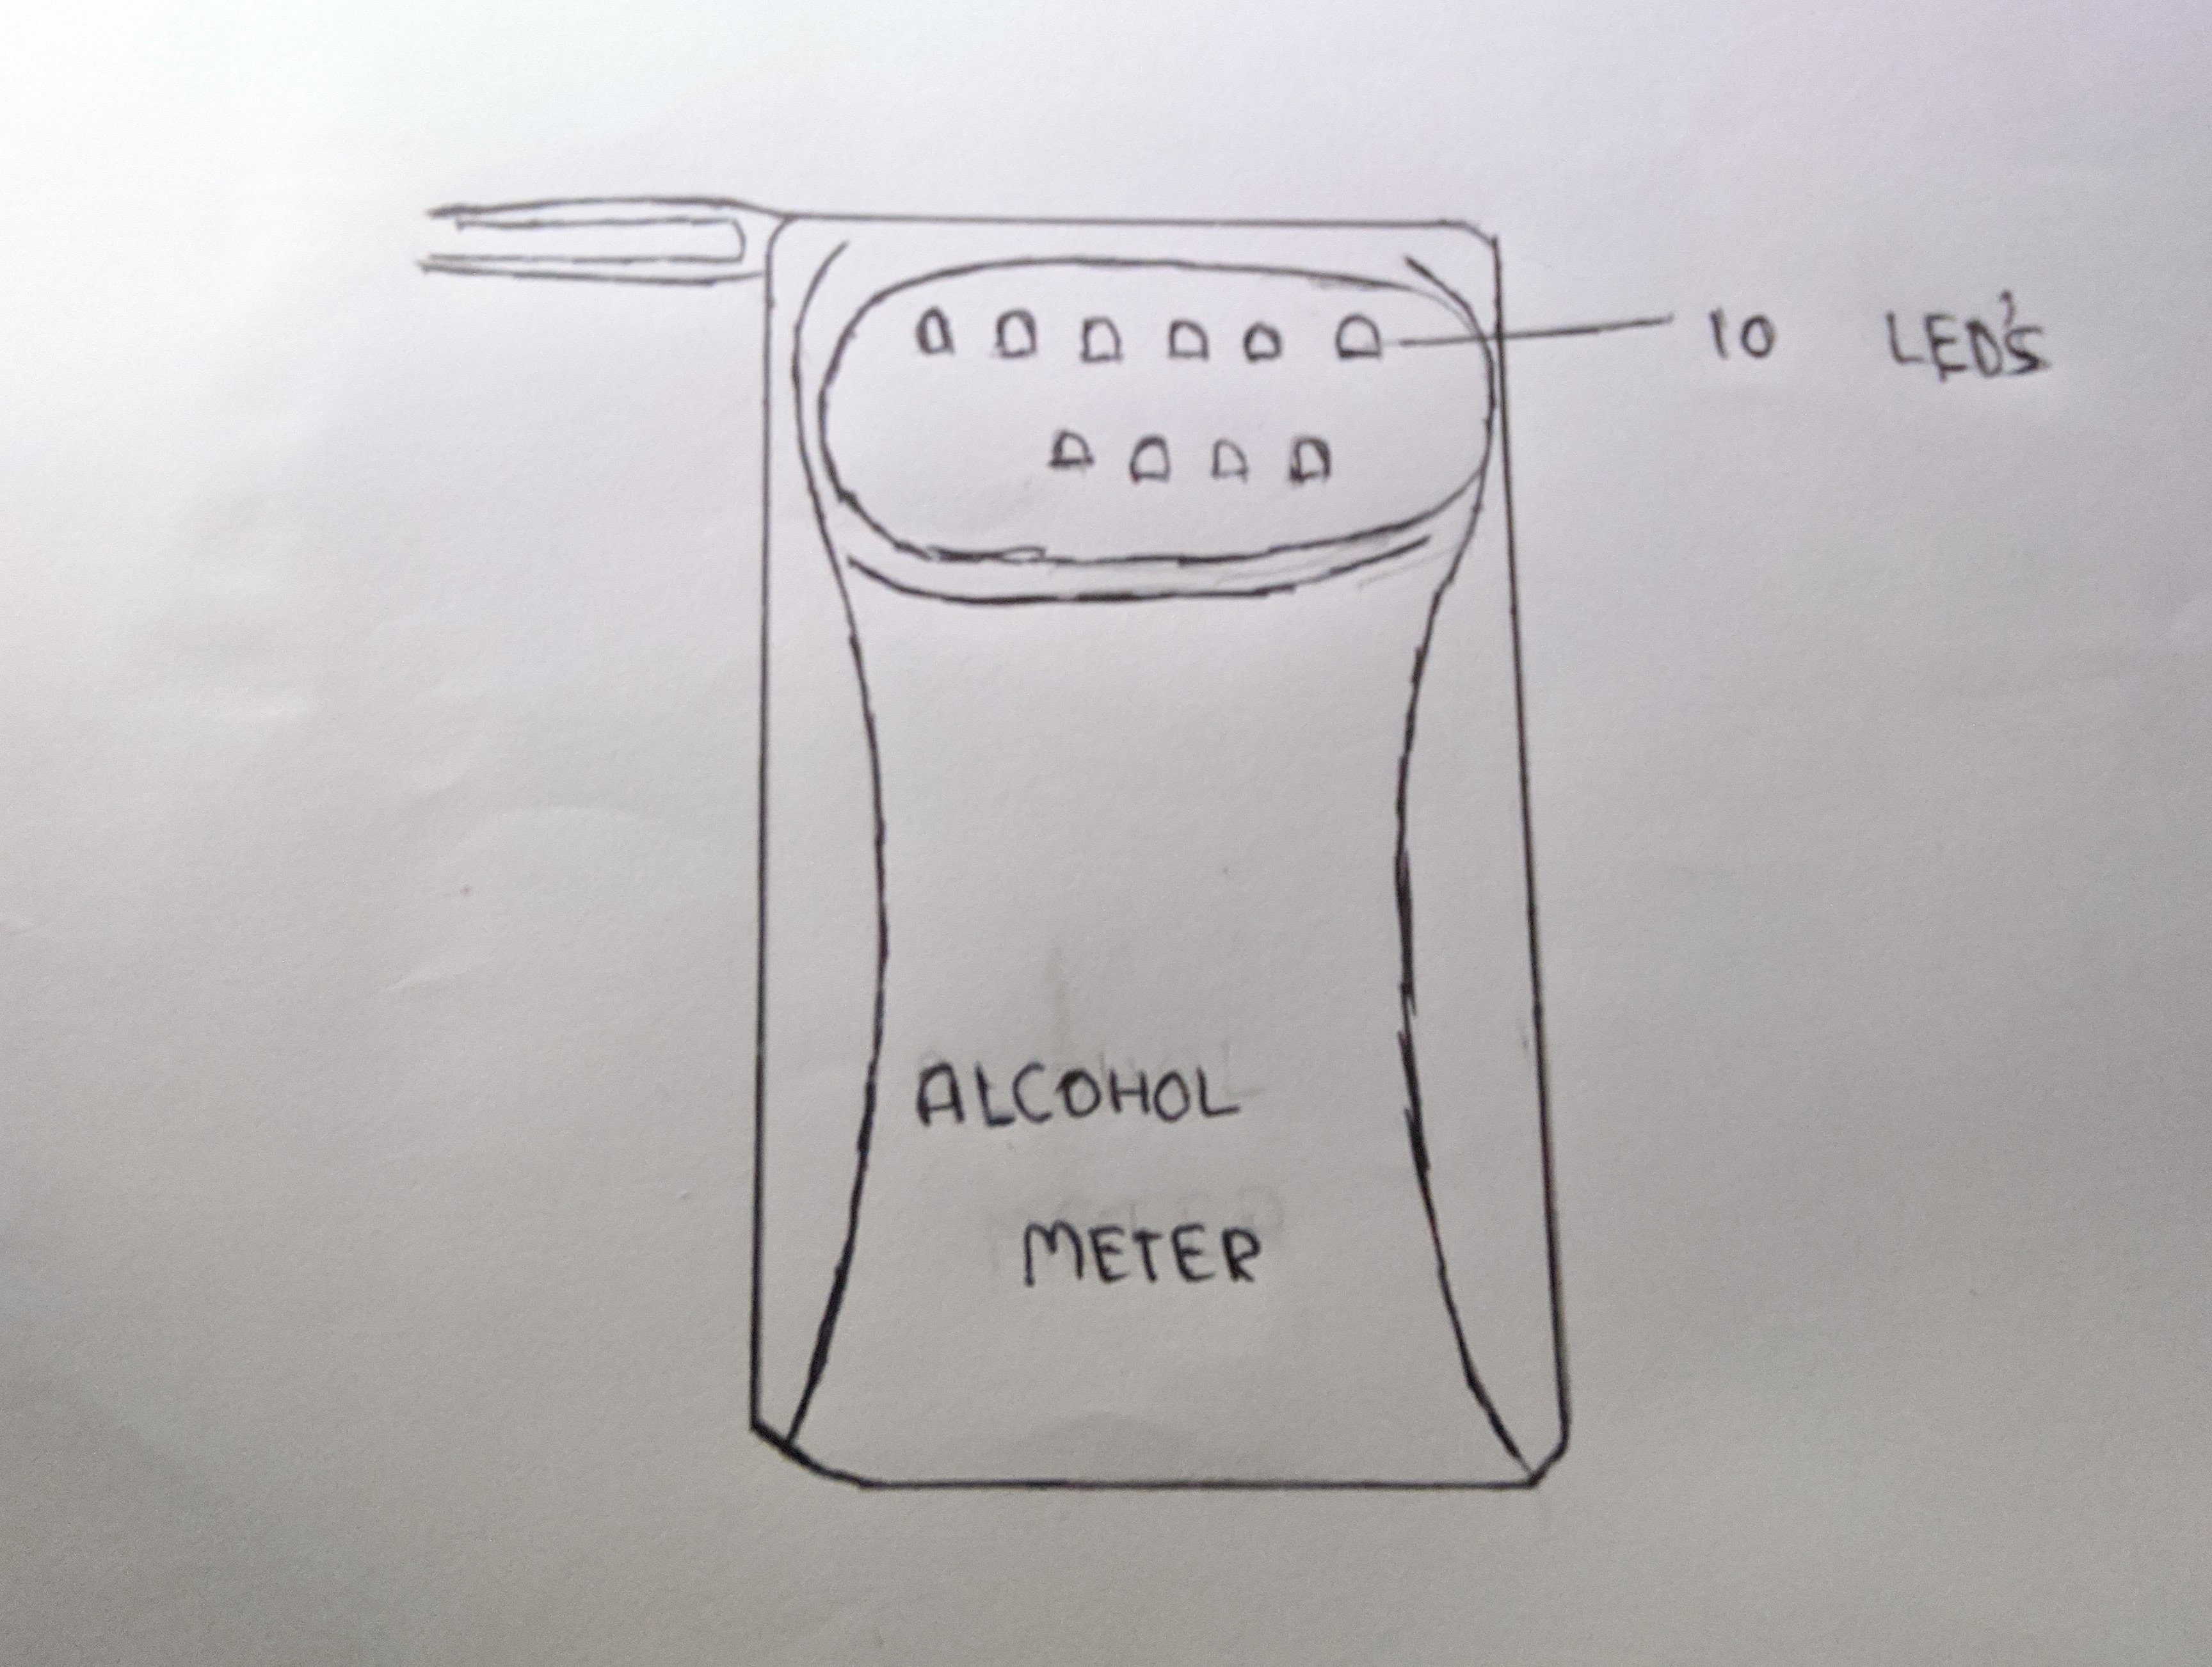 10 LED's
ALCOHOL
METER